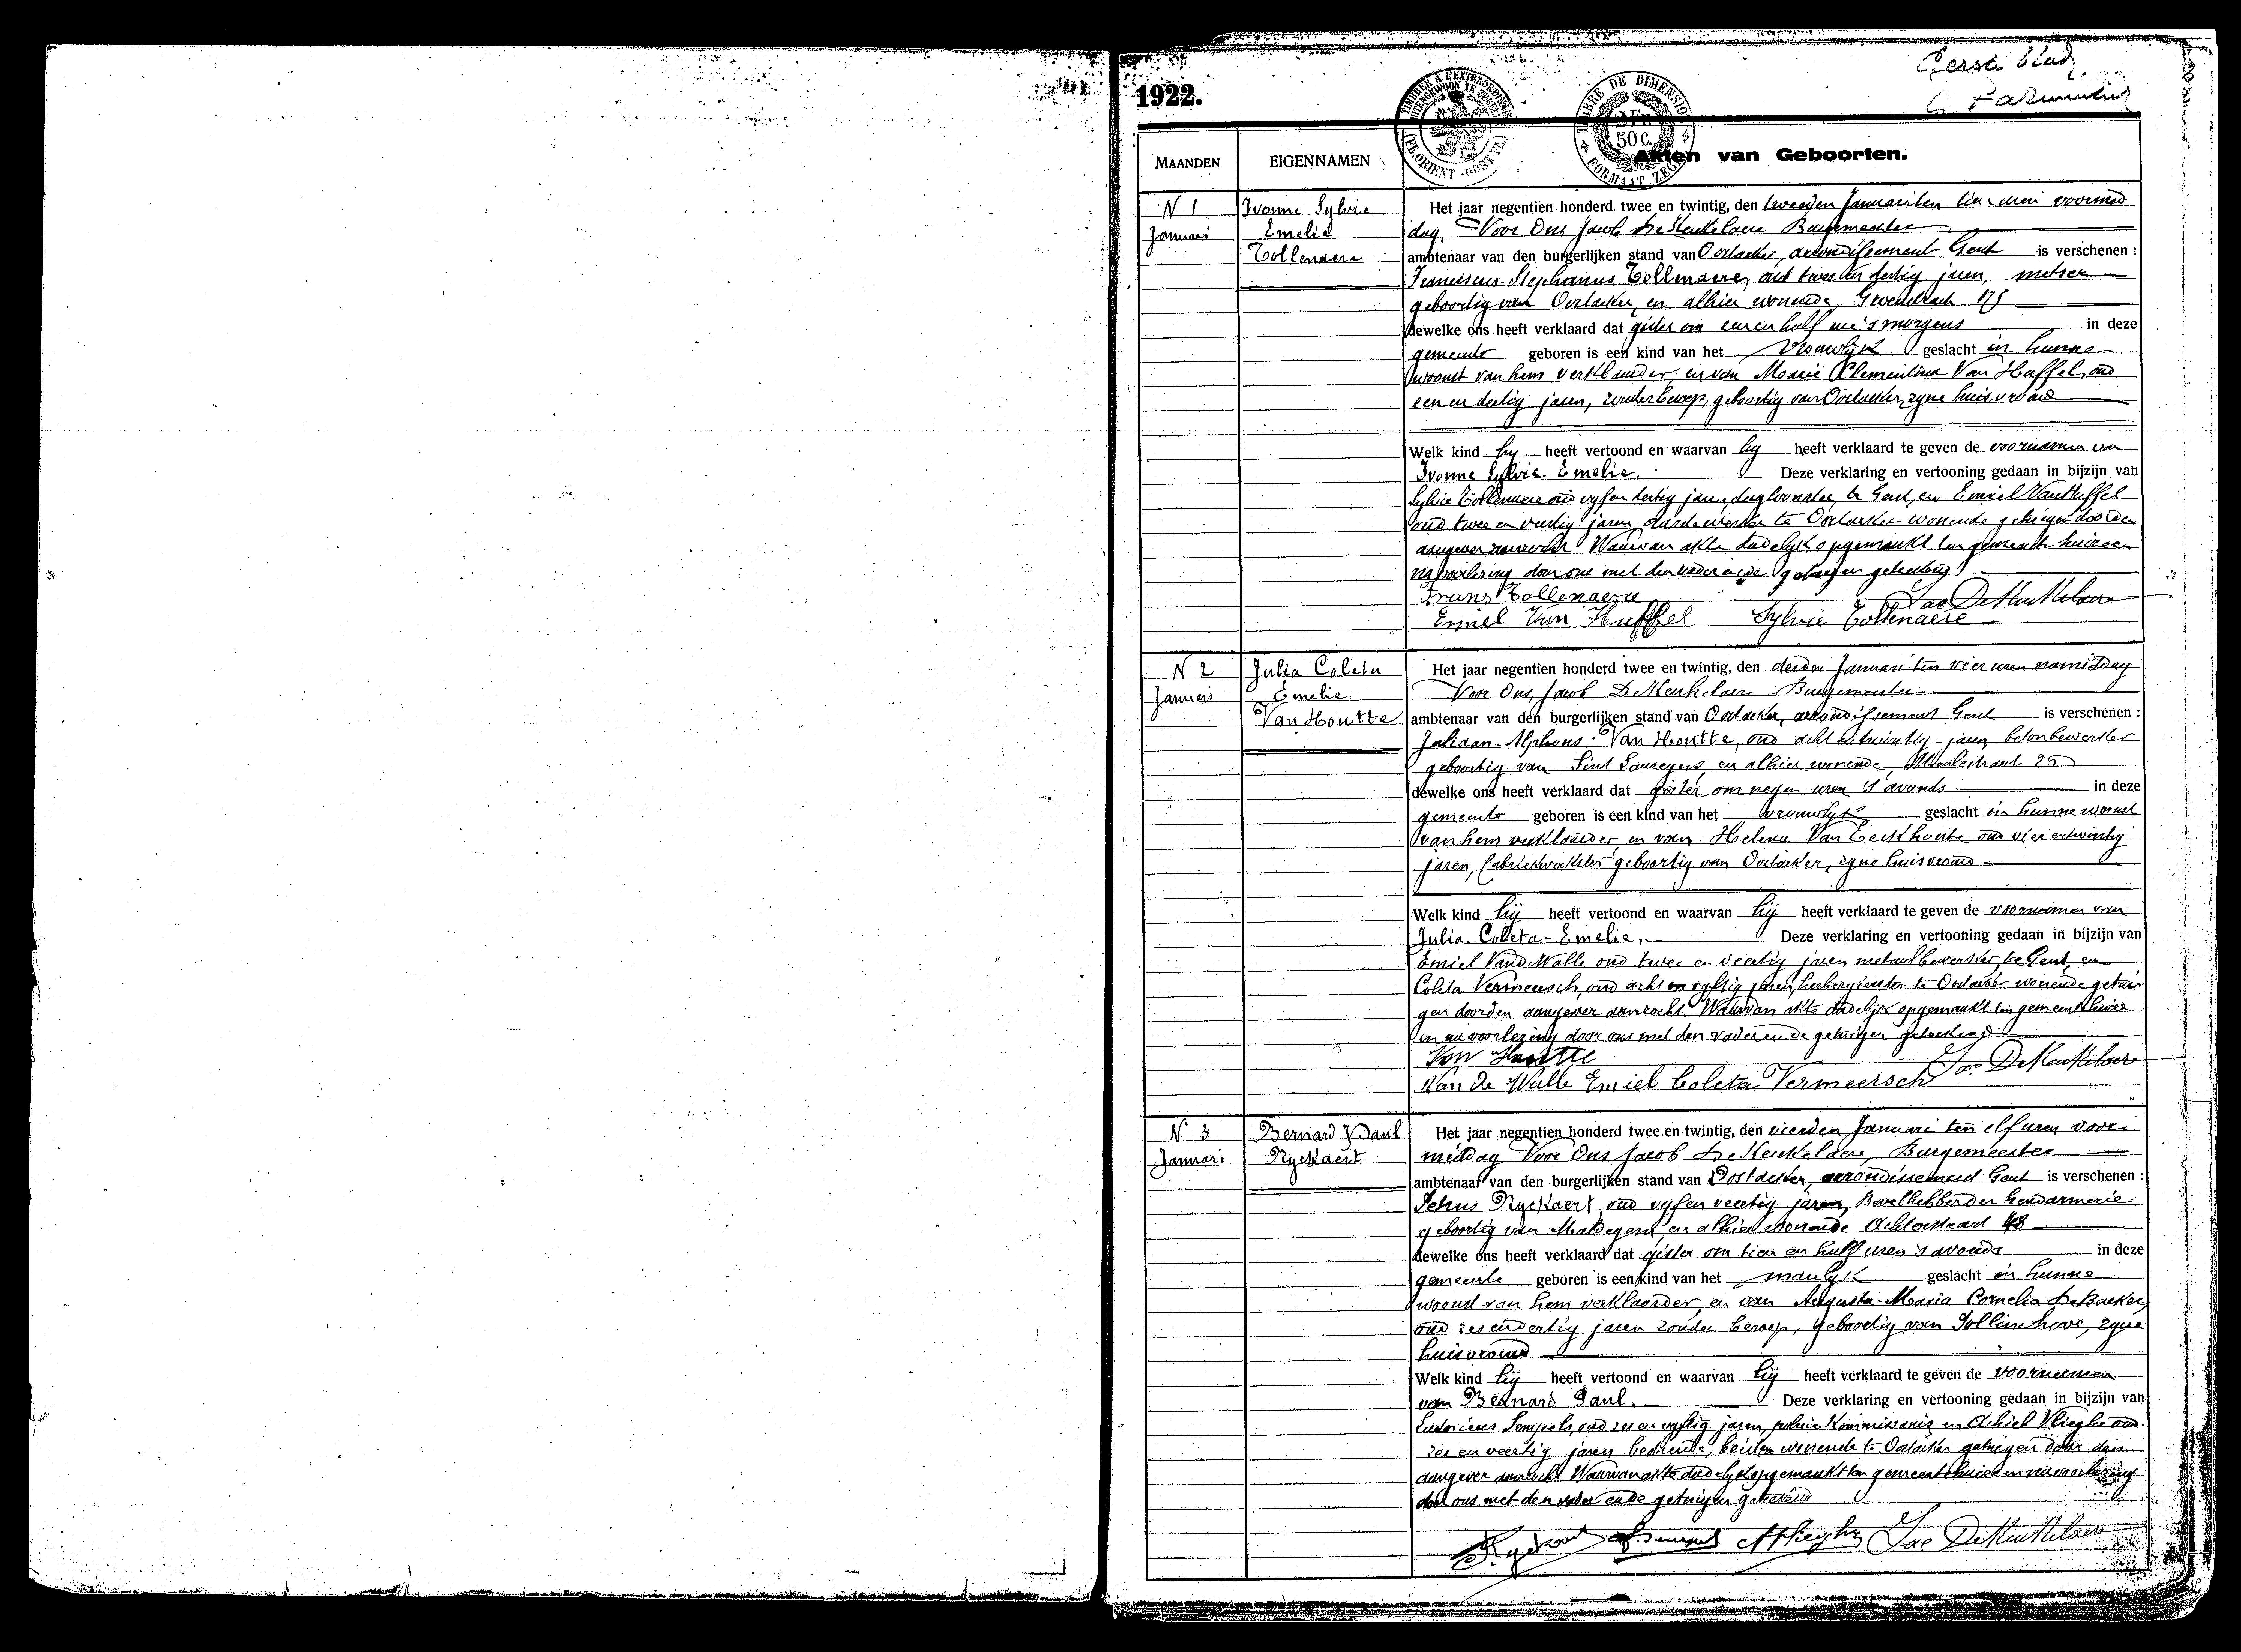 Eerste blad
1922.
TIMBRE A L'EXTRAORDINAIRE
BUITENGEWOON TE ZEGELEN
TIMBRE DE DIMENSION
2 FR
50 C.
FORMAAT ZEGEL
MAANDEN
EIGENNAMEN
Akten van Geboorten.
N 1
Januari
Ivonne Sylvie
Emelie
Tollenaere
Het jaar negentien honderd twee en twintig, den tweeden Januari ten tien uren voormid
dag, Voor Ons Jacob De Keukelaere Burgemeester
ambtenaar van den burgerlijken stand van Oostacker, arrondissement Gent is verschenen :
Franciscus-Stephanus Tollenaere, oud twee en dertig jaren, metser
geboortig van Oostacker, en alhier wonende, 175
dewelke ons heeft verklaard dat gister om een en half ure 's morgens in deze
gemeente geboren is een kind van het vrouwlijk geslacht in hunne
woonst van hem verklaarder, en van Marie Clementina Van Huffel, oud
een en dertig jaren, zonder beroep, geboortig van Oostacker, zyne huisvrouw
Welk kind hy heeft vertoond en waarvan hy heeft verklaard te geven de voornamen van
Ivonne Sylvie-Emelie. Deze verklaring en vertooning gedaan in bijzijn van
Sylvie Tollenaere oud vyf en dertig jaren, dagloonster, te Gent, en Emiel Van Huffel
oud twee en veertig jaren, aardewerker te Oostacker wonende getuigen door den
aangever aanzocht Waarvan akte dadelyk opgemaakt ten gemeentehuize en
na voorlezing door ons met den vader en de getuigen geteekend
Frans Tollenaere
Jac De Keukelaere
Emiel Van Huffel Sylvie Tollenaere
N 2
Januari
Julia Coleta
Emelie
Van Houtte
Het jaar negentien honderd twee en twintig, den derden Januari ten vier uren namiddag
Voor Ons, Jacob De Keukelaere Burgemeester
ambtenaar van den burgerlijken stand van Oostacker, arrondissement Gent is verschenen :
Juliaan-Alphons Van Houtte, oud acht en twintig jaren, betonbewerker
geboortig van Sint Laureyns, en alhier wonende, Meulestraat 26
dewelke ons heeft verklaard dat gister om negen uren 's avonds in deze
gemeente geboren is een kind van het vrouwlyk geslacht in hunne woonst
van hem verklaarder, en van Helena Van Eeckhoute oud vier en twintig
jaren, fabriekwerkster geboortig van Oostacker, zyne huisvrouw
Welk kind hij heeft vertoond en waarvan hij heeft verklaard te geven de voornamen van
Julia-Coleta-Emelie. Deze verklaring en vertooning gedaan in bijzijn van
Emiel Vande Walle oud twee en veertig jaren metaalbewerker, te Gent, en
Coleta Vermeersch, oud acht en vyftig jaren, herbergierster te Oostacker wonende getui
gen door den aangever aanzocht. Waarvan akte dadelyk opgemaakt ten gemeentehuize
en na voorlezing door ons met den vader en de getuigen geteekend
Van Houtte
Jac De Keukelaere
Van de Walle Emiel Coleta Vermeersch
N 3
Januari
Bernard Paul
Ryckaert
Het jaar negentien honderd twee en twintig, den vierden Januari ten elf uren voor
middag Voor Ons Jacob De Keukelaere, Burgemeester
ambtenaar van den burgerlijken stand van Oostacker, arrondissement Gent is verschenen :
Petrus Ryckaert, oud vyf en veertig jaren, Bevelhebber der Gendarmerie
geboortig van Maldegem, en alhier wonende 48
dewelke ons heeft verklaard dat gister om tien en half uren 's avonds in deze
gemeente geboren is een kind van het manlyk geslacht in hunne
woonst van hem verklaarder, en van Augusta-Maria Cornelia De Backer,
oud zes en dertig jaren zonder beroep, geboortig van Pollinchove, zyne
huisvrouw
Welk kind hij heeft vertoond en waarvan hij heeft verklaard te geven de voornamen
van Bernard Paul. Deze verklaring en vertooning gedaan in bijzijn van
Ludovicus Sempels, oud en vyftig jaren, policie Kommissaris, en Achiel Vlieghe oud
zes en veertig jaren bediende, beiden wonende te Oostacker getuigen door den
aangever aanzocht Waarvan akte dadelyk opgemaakt ten gemeentehuize en na voorlezing
door ons met den vader en de getuigen geteekend
Ryckaert Sempels A Vlieghe Jac De Keukelaere